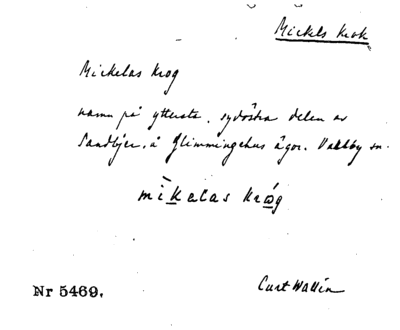 Mickels Krok
Mickelas Krog
namn på yttersta, sydöstra delen av
Sandbjer, å Glimmingehus ägor. Vallby sn.
mìkelas krǿg
Curt Wallin
Nr 5469.